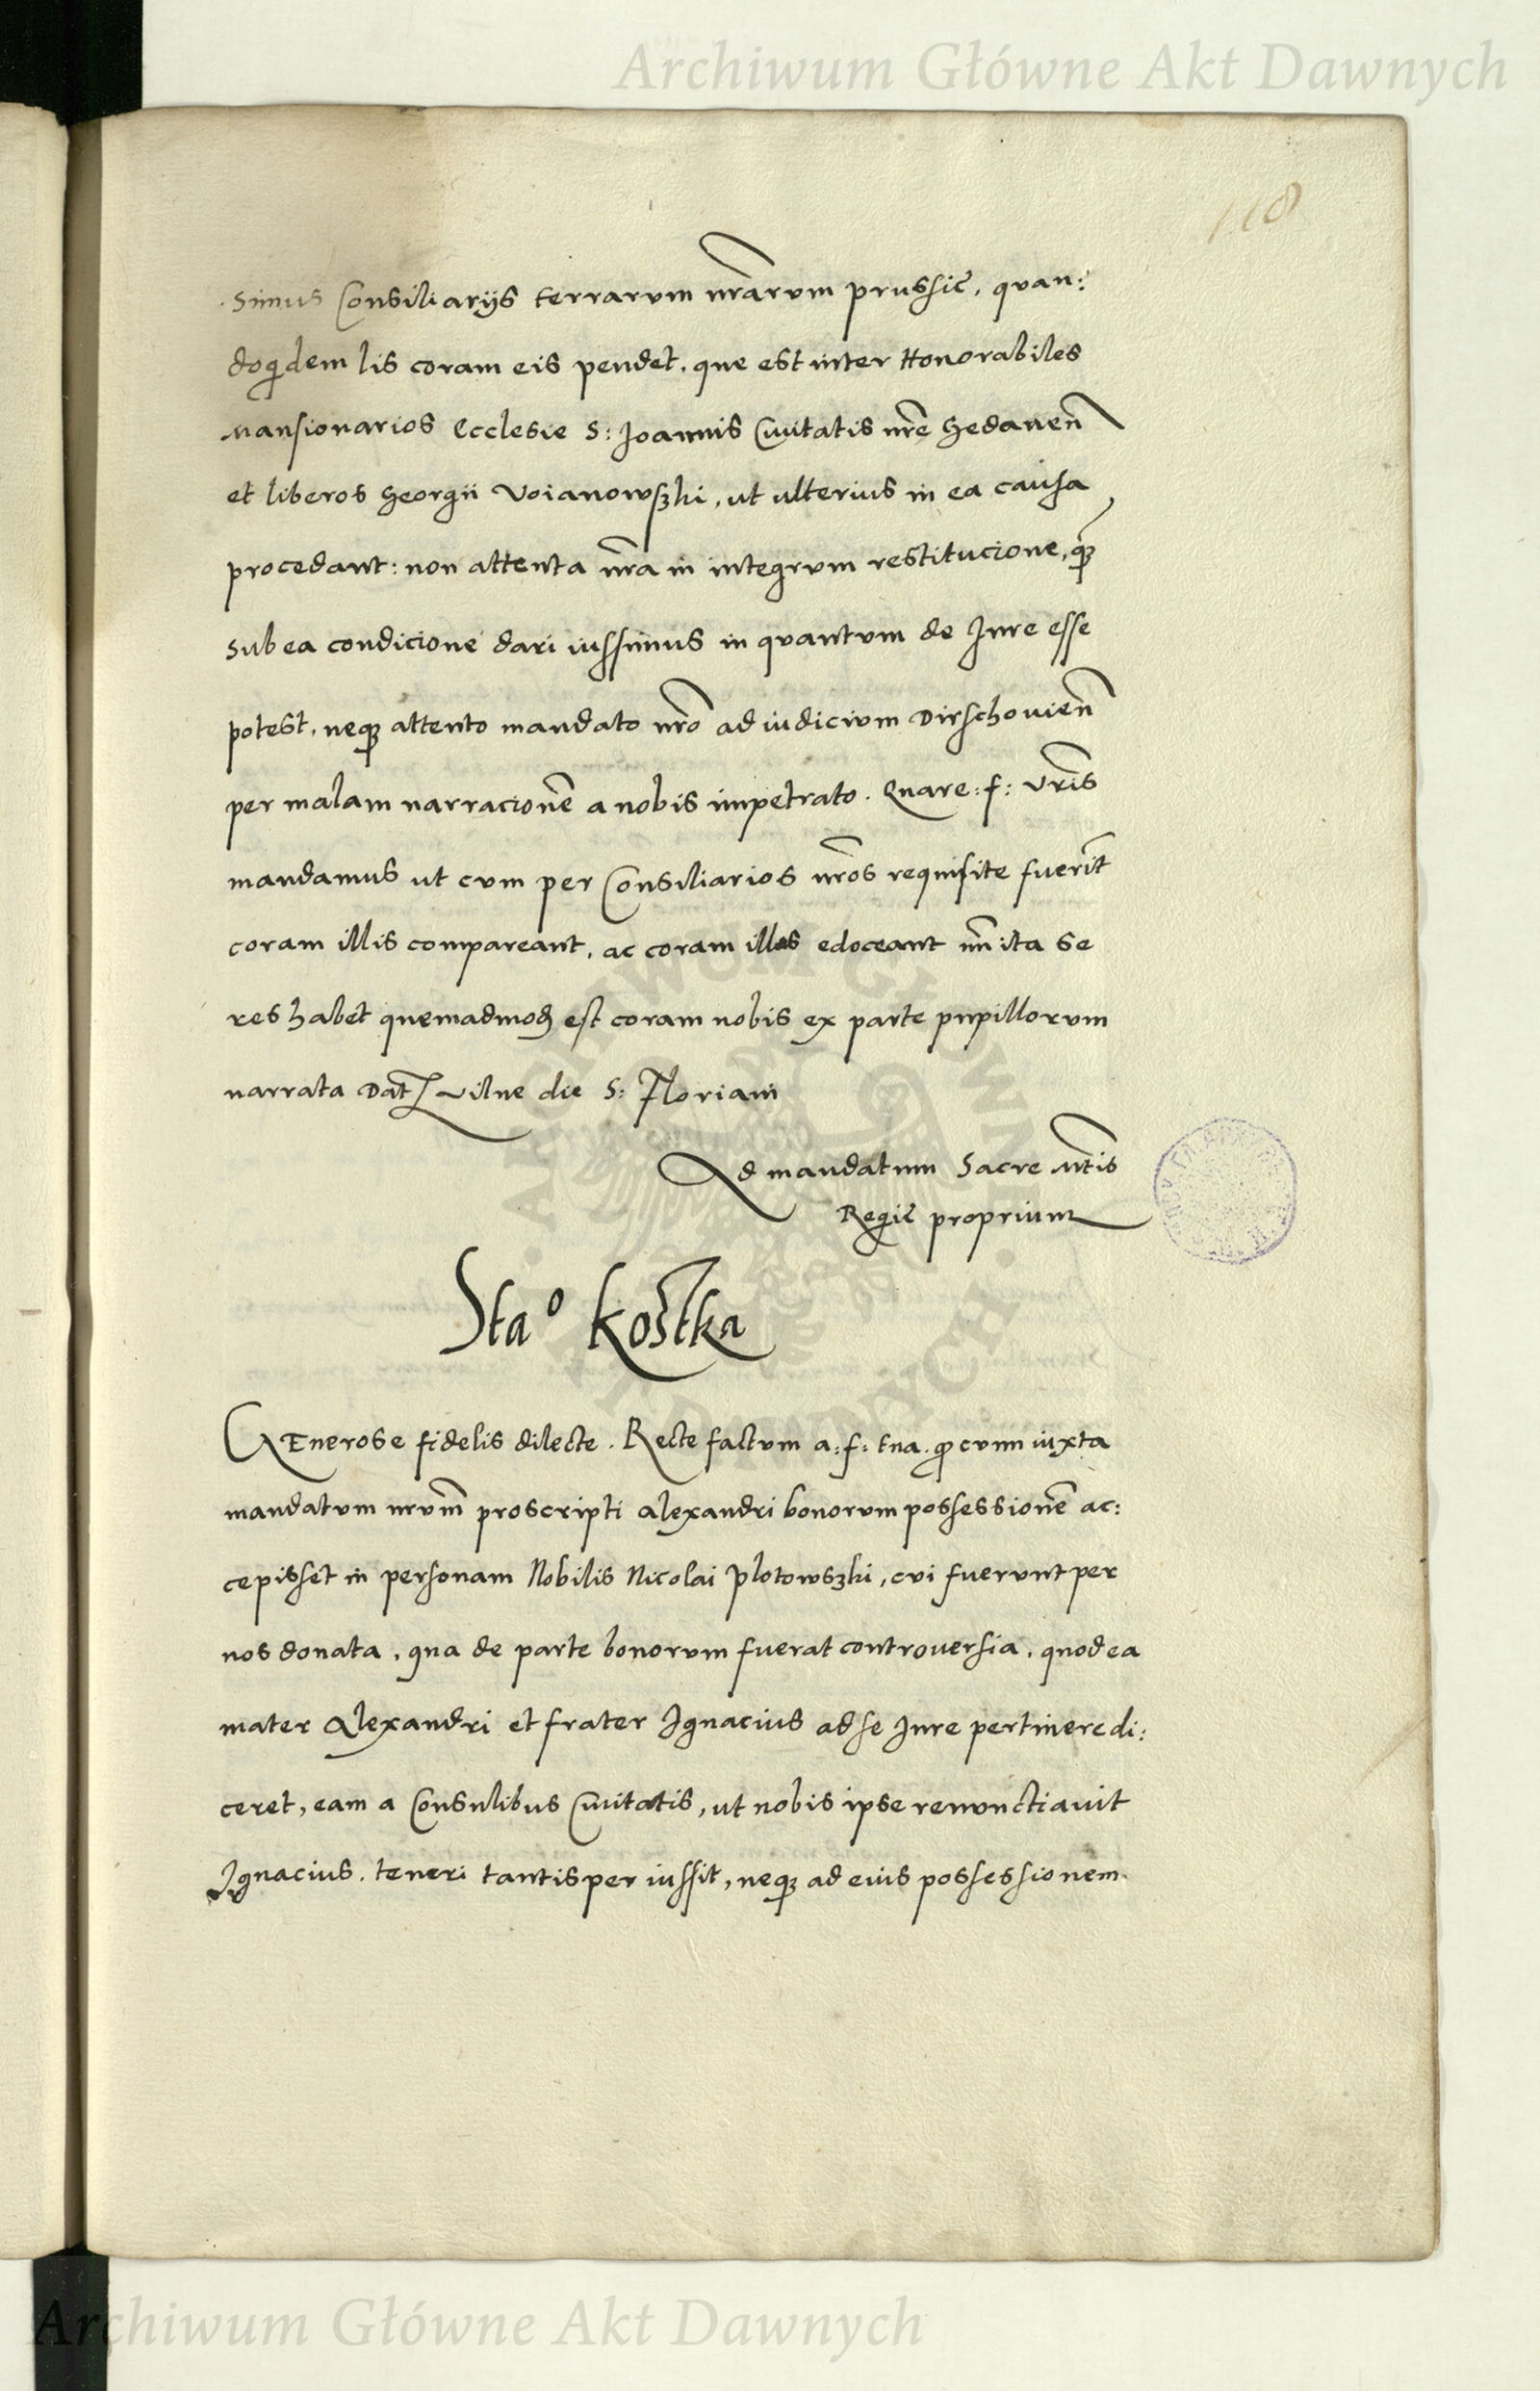 Archiwum Główne Akt Dawnych
118
simus Consiliarijs terrarum nrarum prussie, quan:
doqdem lis coram eis pendet, que est inter Honorabiles
Mansionarios Ecclesie S: Joannis Civitatis nre Gedanen
et liberos Georgii Voianowszki, ut ulterius in ea causa
procedant: non attenta nra in integrum restitucione, quam
sub ea condicione dari iussimus in quantum de Jure esse
potest, neque attento mandato nro ad iudicium Dirschovien
per malam narracione a nobis impetrato. Quare: f: Vris
mandamus ut cum per Consiliarios nros requisite fuerit
coram illis compareant, ac coram illis edoceant num ita se
res habet quemadmodum est coram nobis ex parte pupillorum
narrata Dat Vilne die S: Floriani
Ad mandatum Sacre Mtis
Regie proprium
Stao Kostka
GEnerose fidelis dilecte. Recte factum a: f: tua. quod cum iuxta
mandatum nrum proscripti Alexandri bonorum possessione ac:
cepisset in personam Nobilis Nicolai Plotowszki, cui fuerunt per
nos donata, qua de parte bonorum fuerat controversia, quod ea
mater Alexandri et frater Ignacius ad se Jure pertinere di:
ceret, eam a Consulibus Civitatis, ut nobis ipse renunctiavit
Ignacius, teneri tantisper iussit, neque ad eius possessionem
Archiwum Główne Akt Dawnych